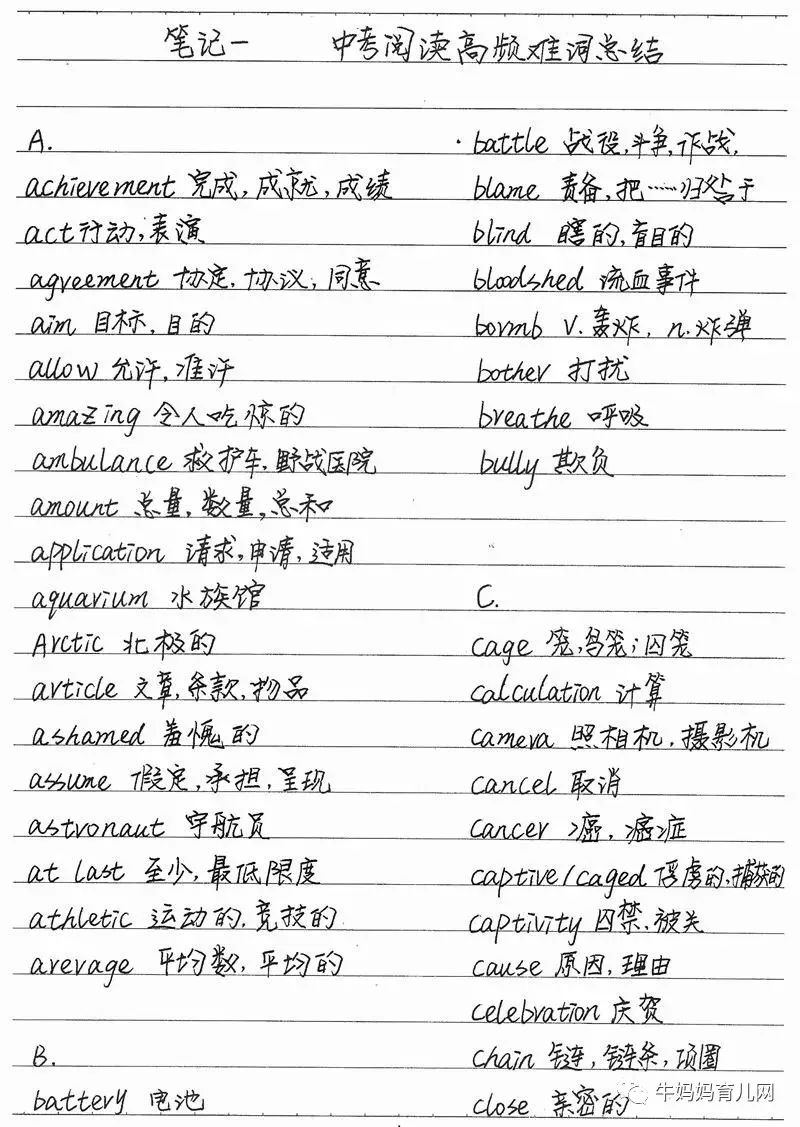 笔记一 中考阅读高频难词总结
A.
achievement 完成,成就,成绩
act 行动,表演
agreement 协定,协议,同意
aim 目标,目的
allow 允许,准许
amazing 令人吃惊的
ambulance 救护车,野战医院
amount 总量,数量,总和
application 请求,申请,适用
aquarium 水族馆
Arctic 北极的
article 文章,条款,物品
ashamed 羞愧的
assume 假定,承担,呈现
astronaut 宇航员
at last 至少,最低限度
athletic 运动的,竞技的
average 平均数,平均的
B.
battery 电池
·battle 战役,斗争,作战,
blame 责备,把……归咎于
blind 瞎的,盲目的
bloodshed 流血事件
bomb v.轰炸, n.炸弹
bother 打扰
breathe 呼吸
bully 欺负
C.
cage 笼,鸟笼;囚笼
calculation 计算
camera 照相机,摄影机
cancel 取消
cancer 癌,癌症
captive/caged 俘虏的,捕获的
captivity 囚禁,被关
cause 原因,理由
celebration 庆贺
chain 链,链条,项圈
close 亲密的
牛妈妈育儿网